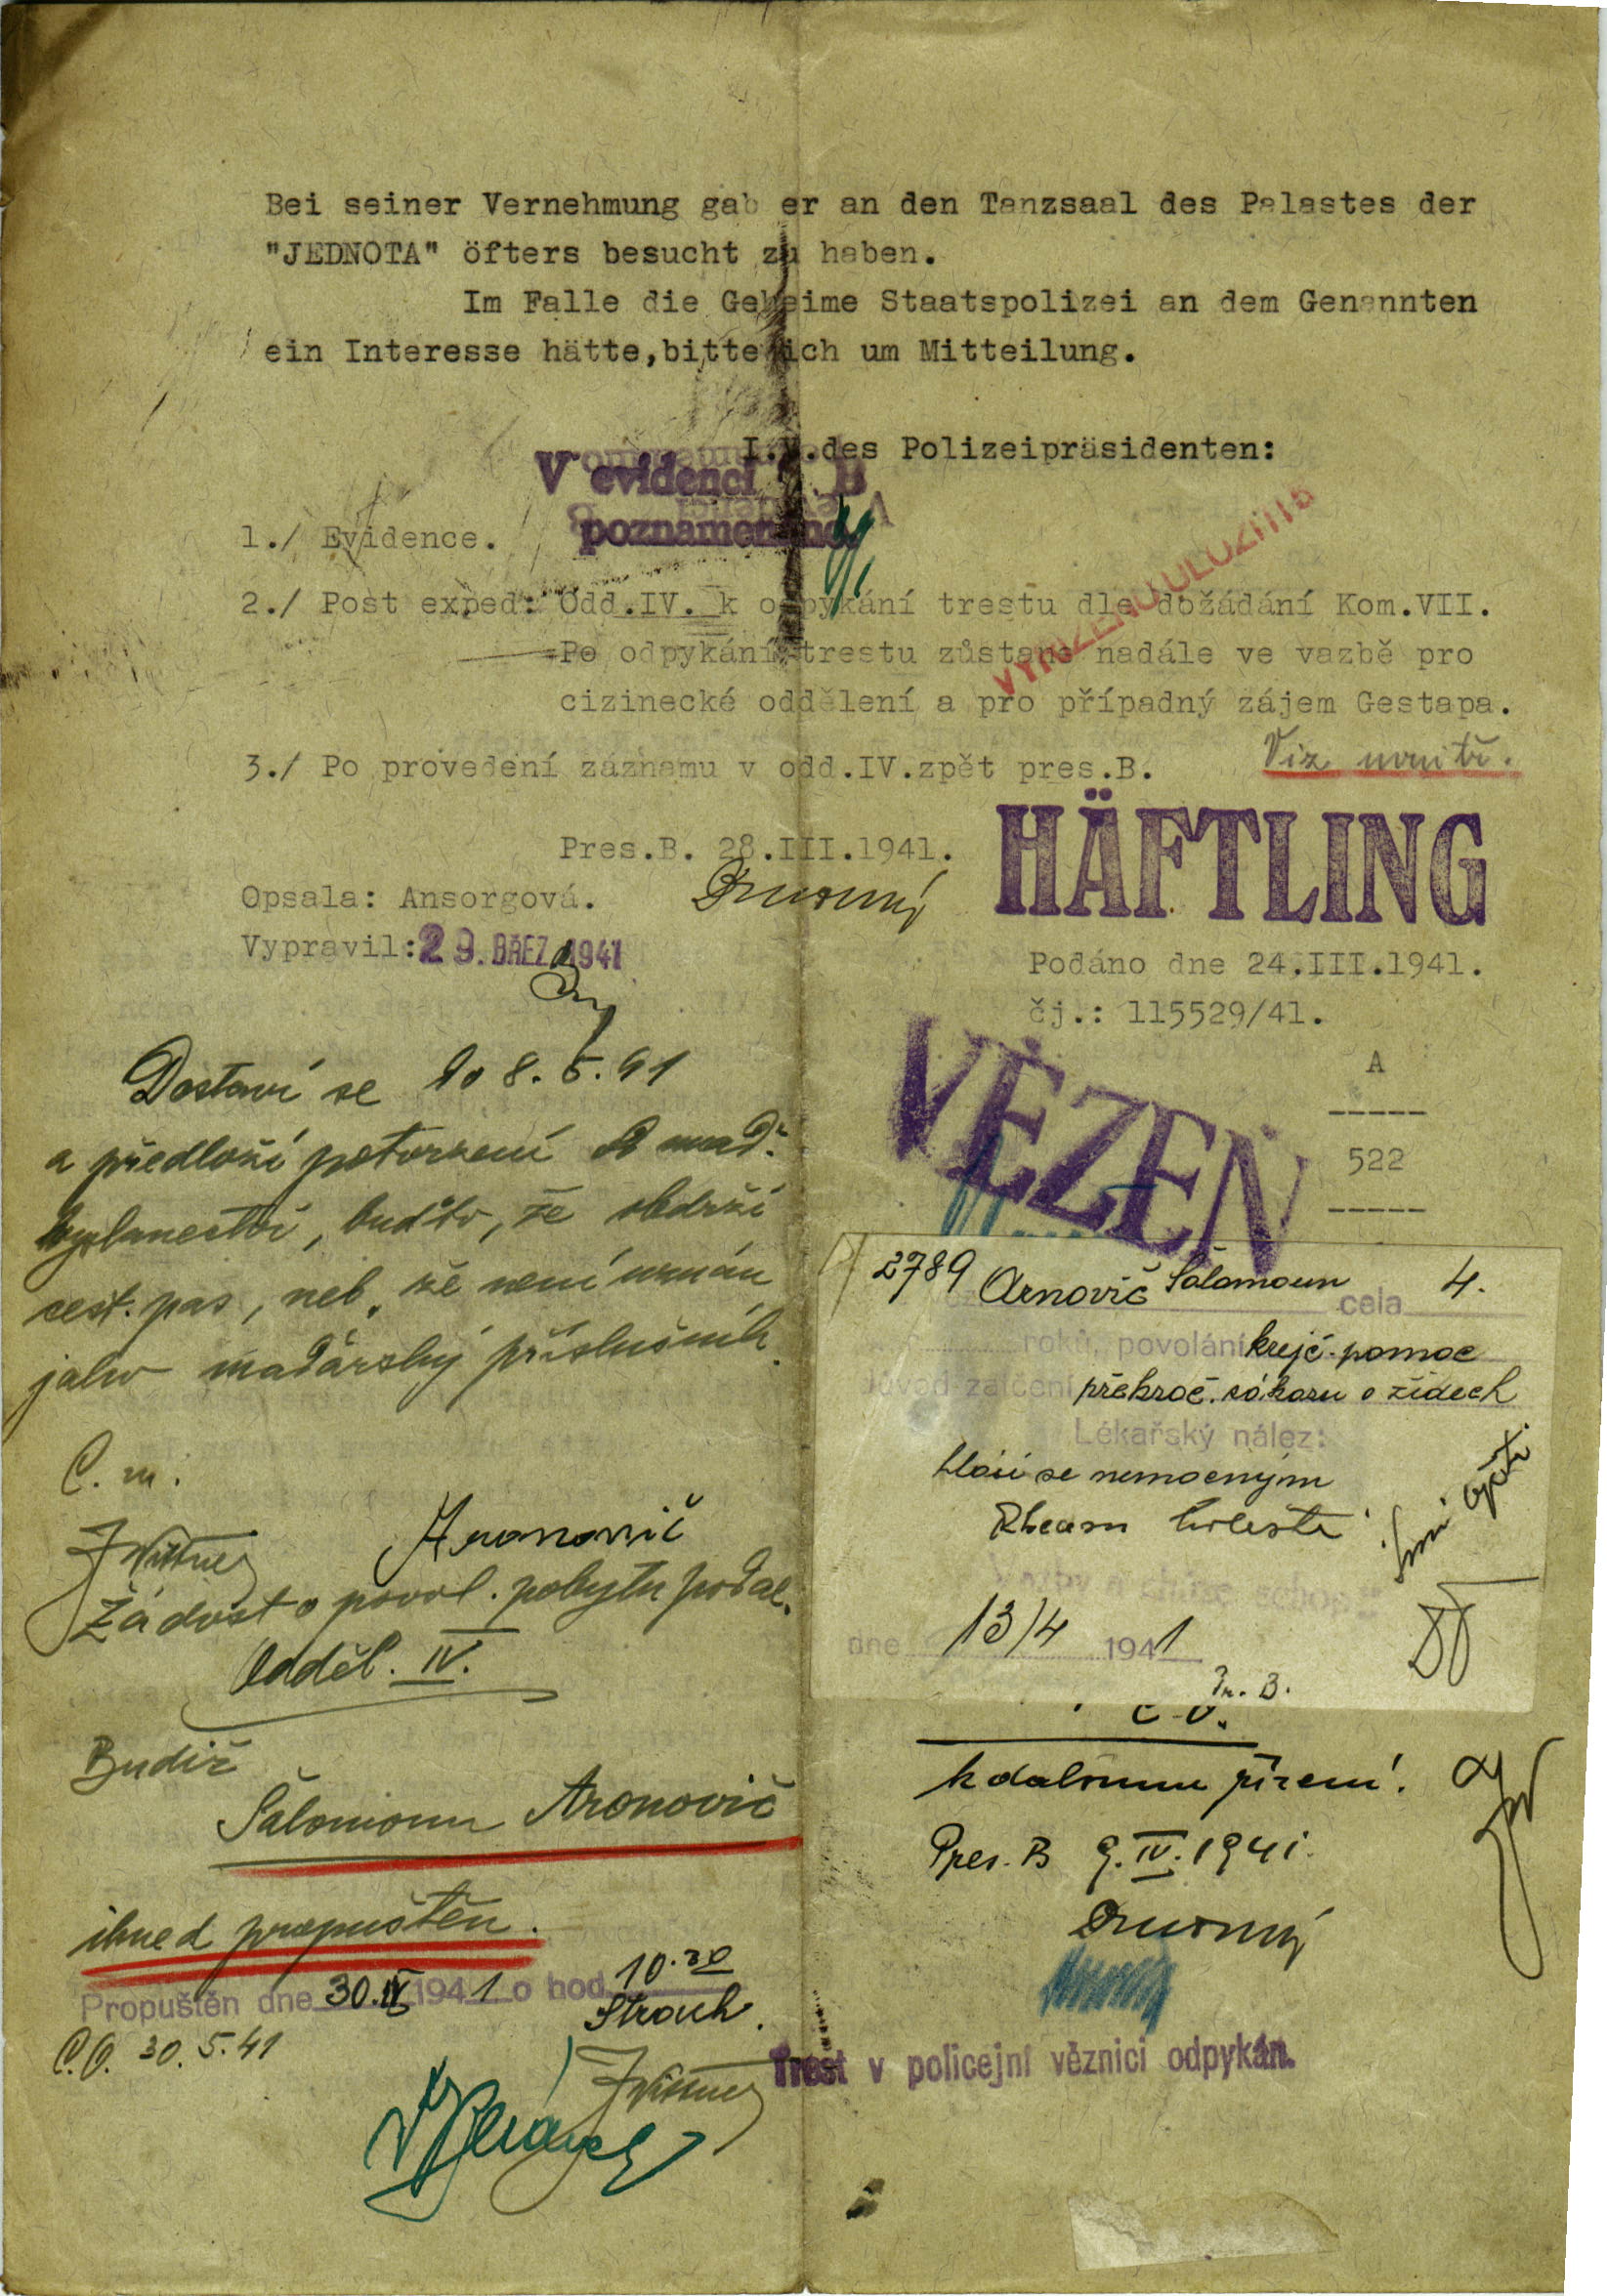 Bei seiner Vernehmung gab er an den Tanzsaal des Palastes der
"JEDNOTA" öfters besucht zu haben.
Im Falle die Geheime Staatspolizei an dem Genannten
ein Interesse hätte,bitte ich um Mitteilung.
I.V.des Polizeipräsidenten:
V evidenci B
poznamenáno.
1./ Evidence.
2./ Post exped: Odd.IV. k odpykání trestu dle dožádání Kom.VII.
Po odpykání trestu zůstane nadále ve vazbě pro
cizinecké oddělení a pro případný zájem Gestapa.
3./ Po provedení záznamu v odd.IV.zpět pres.B.
Viz uvnitř.
Pres.B. 28.III.1941.
Opsala: Ansorgová.
Vypravil: 29. BŘEZ. 1941
HÄFTLING
Podáno dne 24.III.1941.
čj.: 115529/41.
A
-----
522
-----
VĚZEŇ
Dostaví se do 8.5.41
a předloží potvrzení o maď.
vyslanectví, buďto, že obdrží
cest. pas, neb že není uznán
jako maďarský příslušník.
C. m.
Aronovič
Žádost o povol. pobytu podal.
Odděl. IV.
Budiž
Šalomoun Aronovič
ihned propuštěn.
Propuštěn dne 30.IV 1941 o hod. 10.30
Strouh.
C.O. 30.5.41
2789 Arnovič Šalamoun cela 4.
roků, povolání krejč. pomoc
Důvod zatčení překroč. zákazu o židech
Lékařský nález:
hlásí se nemocným
dne 13/4 1941
Pr. B.
k dalšímu řízení.
Pres. B 9.IV.1941.
Trest v policejní věznici odpykán.